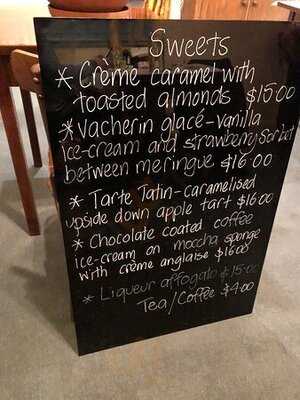 Sweets
* Crème caramel with
toasted almonds $15.00
* Vacherin glacé-vanilla
ice-cream and strawberry sorbet
between meringue $16.00
* Tarte Tatin-caramelised
upside down apple tart $16.00
* Chocolate coated coffee
ice-cream on moccha sponge
with crème anglaise $16.00
* Liqueur affogato $15.00
Tea/Coffee $4.00